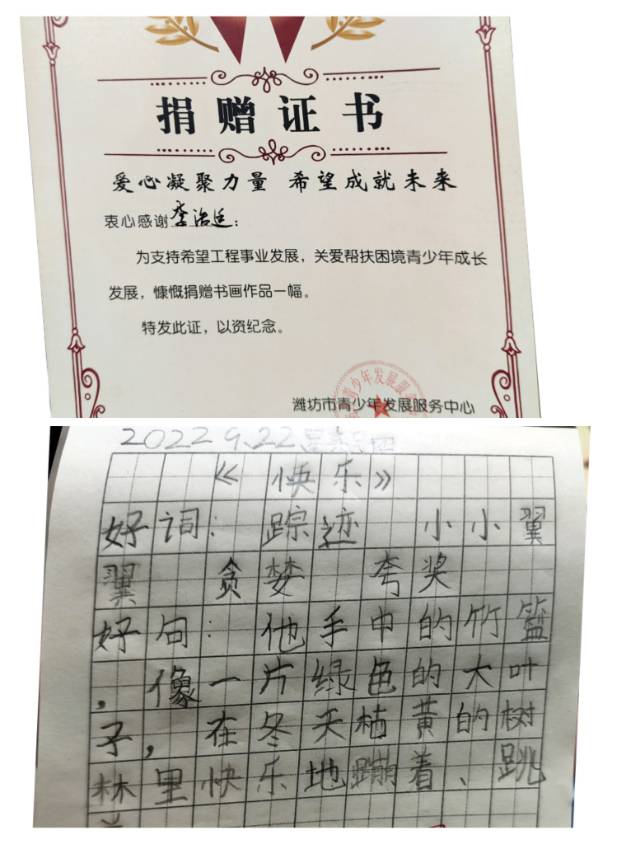 捐赠证书
爱心凝聚力量 希望成就未来
衷心感谢李治廷:
为支持希望工程事业发展,关爱帮扶困境青少年成长
发展,慷慨捐赠书画作品一幅。
特发此证,以资纪念。
潍坊市青少年发展服务中心
2022 9.22
《快乐》
好词: 踪迹 小小翼
翼 贪婪 夸奖
好句: 他手中的竹篮
,像一片绿色的大叶
子,在冬天枯黄的树
林里快乐地蹦着、跳